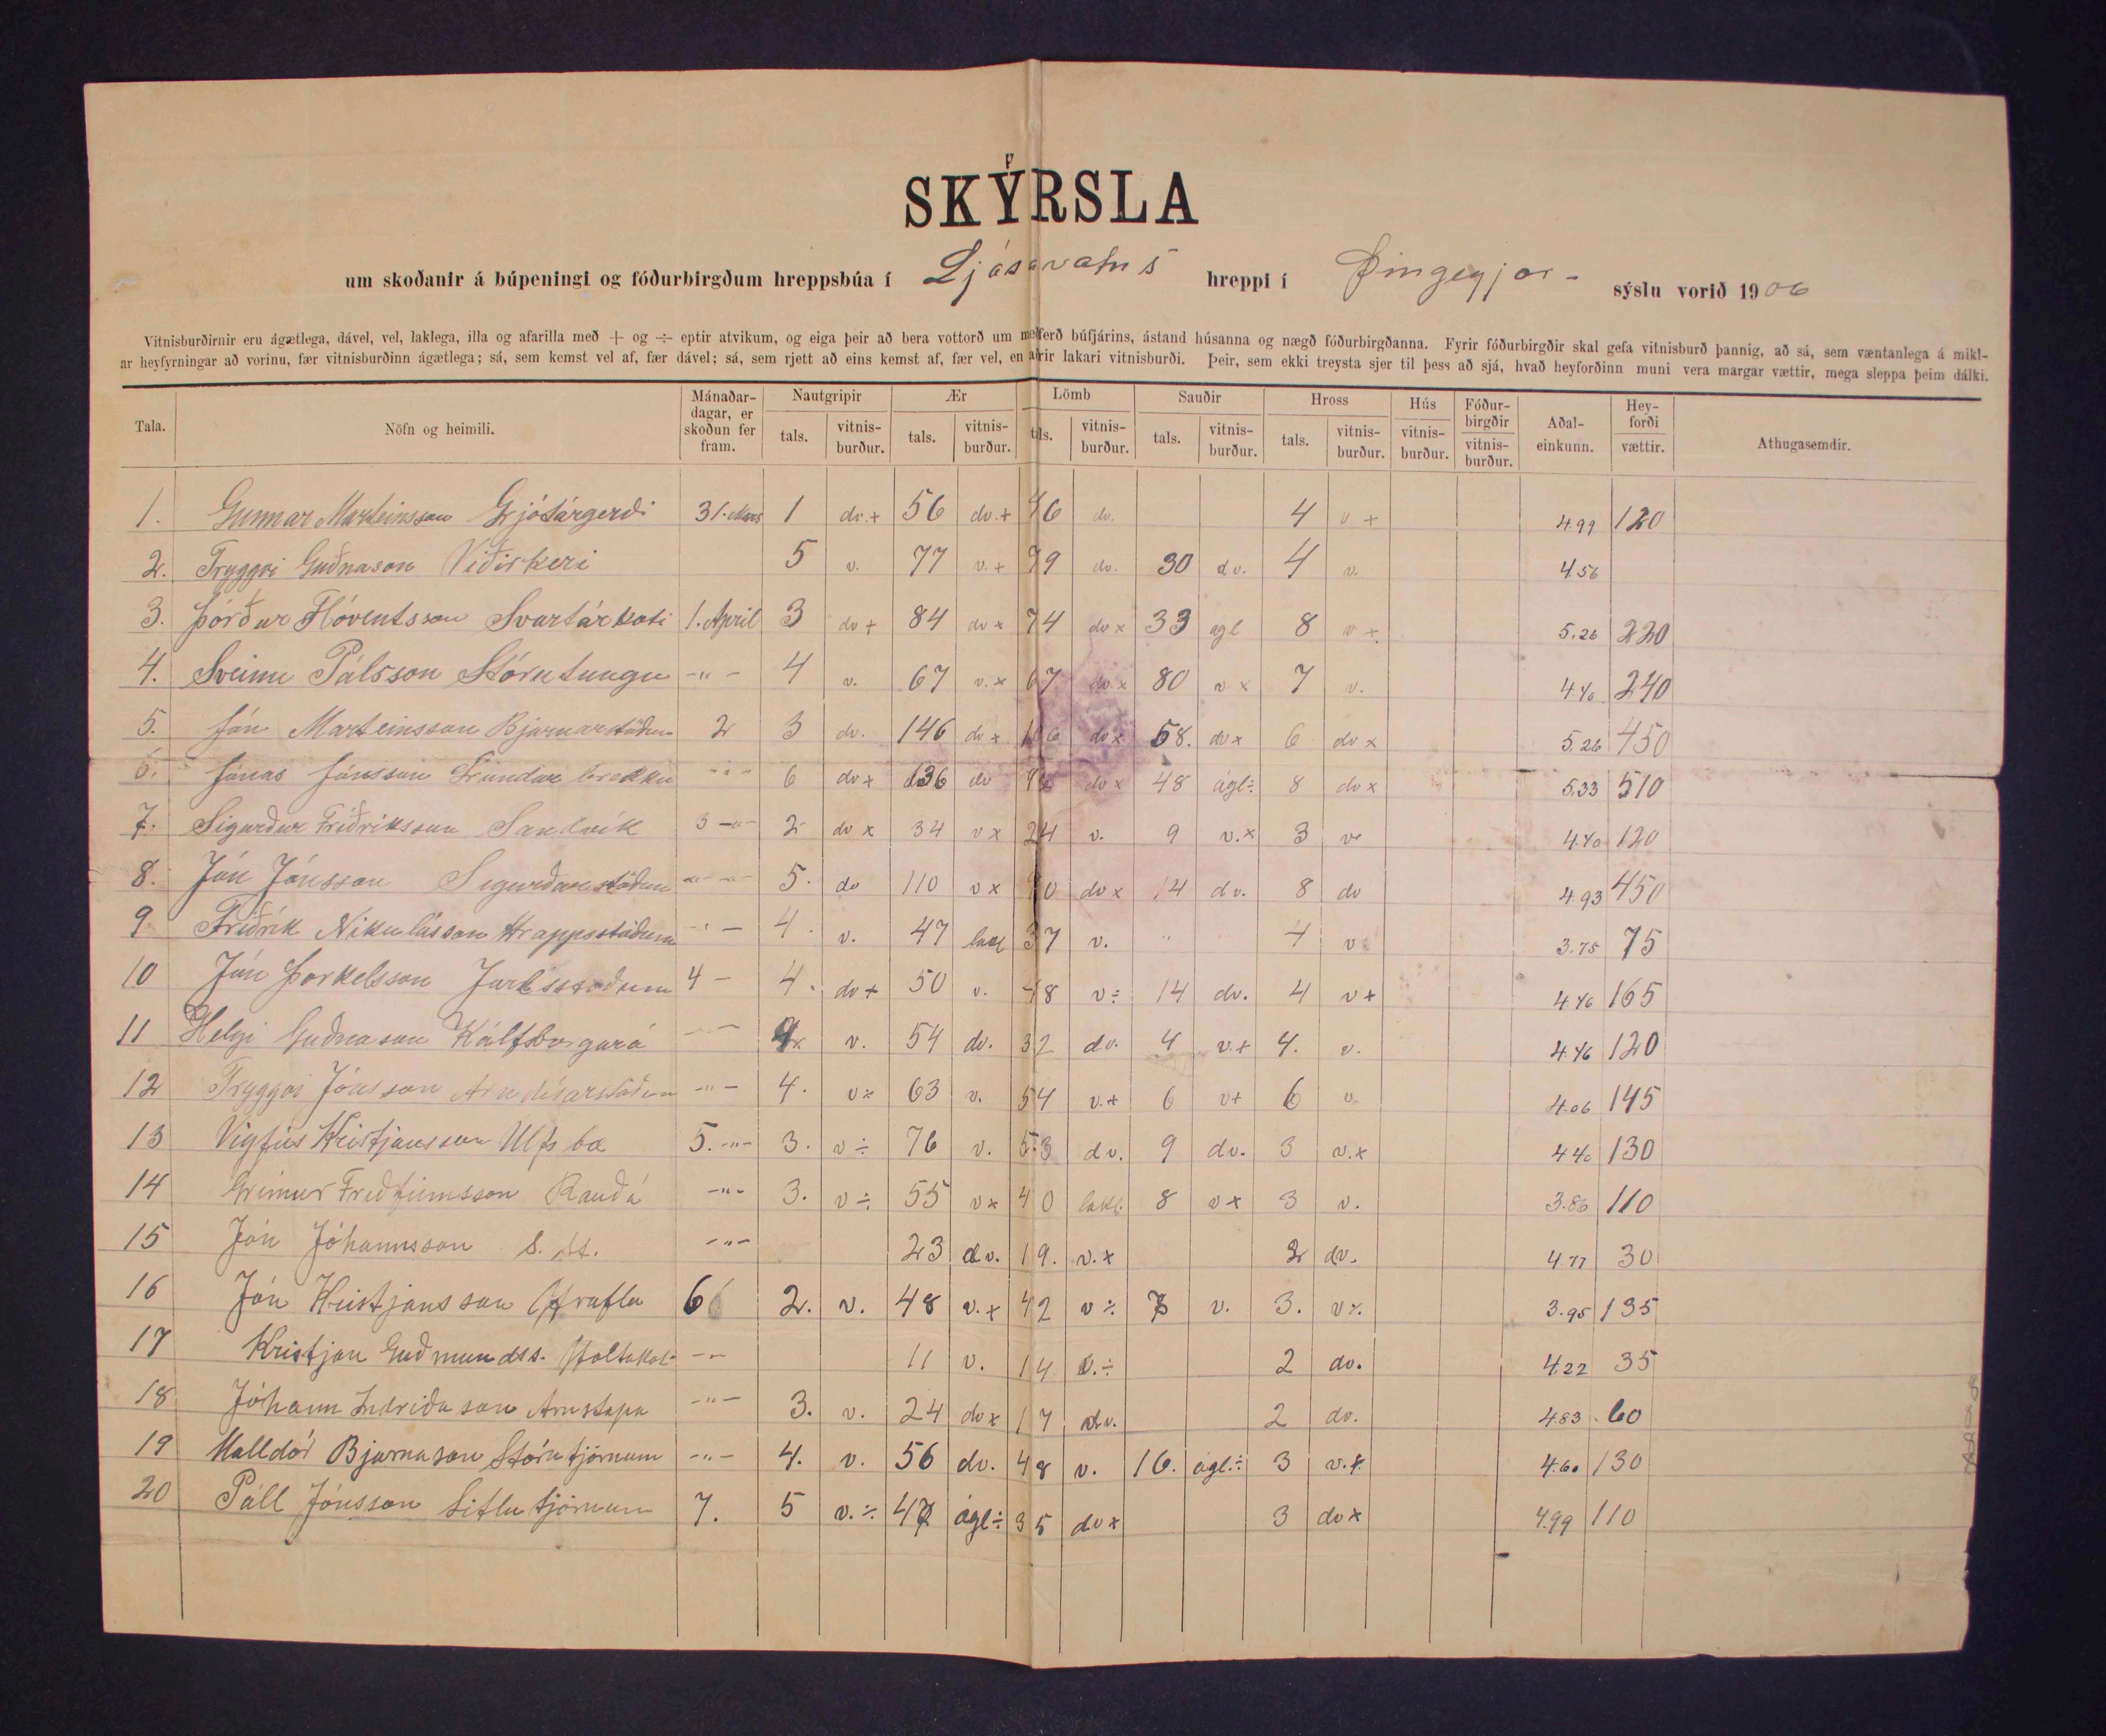 SKÝRSLA
um skoðanir á búpeningi og fóðurbirgðum hreppsbúa í Ljósavatns hreppi í Þingeyjar- sýslu vorið 1906
Vitnisburðirnir eru ágætlega, dável, vel, laklega, illa og afarilla með + og ÷ eptir atvikum, og eiga þeir að bera vottorð um meðferð búfjárins, ástand húsanna og nægð fóðurbirgðanna. Fyrir fóðurbirgðir skal gefa vitnisburð þannig, að sá, sem væntanlega á mikl-
ar heyfyrningar að vorinu, fær vitnisburðinn ágætlega; sá, sem kemst vel af, fær dável; sá, sem rjett að eins kemst af, fær vel, en aðrir lakari vitnisburði. Þeir, sem ekki treysta sjer til þess að sjá, hvað heyforðinn muni vera margar vættir, mega sleppa þeim dálki.
Tala. Nöfn og heimili. Mánaðar-dagar, er skoðun fer fram. Nautgripir tals. vitnis-burður. Ær tals. vitnis-burður. Lömb tals. vitnis-burður. Sauðir tals. vitnis-burður. Hross tals. vitnis-burður. Hús vitnis-burður. Fóður-birgðir vitnis-burður. Aðal-einkunn. Hey-forði vættir. Athugasemdir.
1. Gunnar Marteinsson Grjótárgerði 31. Mars 1 dv.+ 56 dv.+ 46 dv. 4 v+ 4.99 120
2. Tryggvi Guðnason Víðirkeri 5 v. 77 v.+ 79 dv. 30 dv. 4 v. 4.56
3. Þórður Flóventsson Svartárkoti 1. April 3 dv+ 84 dv× 74 dv× 33 agl 8 v+. 5.26 220
4. Sveinn Pálsson Stórutungu -"- 4 v. 67 v.× 67 dv.× 80 v× 7 v. 4.40 240
5. Jón Marteinsson Bjarnarstöðum 2 3 dv. 146 dv× 106 dv× 58. dv× 6 dv× 5.26 450
6. Jónas Jónsson Lundarbrekku -"- 6 dv× 136 dv dv× 48 ágl÷ 8 dv× 5.33 510
7. Sigurður Friðriksson Sandvík 3 -"- 2 dv× 34 v× 24 v. 9 v.× 3 v. 4.40 120
8. Jón Jónsson Sigurðarstöðum -"- 5. dv 110 v× 90 dv× 14 dv. 8 dv 4.93 450
9 Friðrik Nikulásson Hrappsstöðum -"- 4. v. 47 lakl 37 v. " 4 v. 3.75 75
10 Jón Þorkelsson Jarlsstöðum 4 - 4. dv+ 50 v. 48 v÷ 14 dv. 4 v+ 4.46 165
11 Helgi Guðnason Kálfborgará -"- v. 54 dv. 32 dv. 4 v.+ 4. v. 4.46 120
12 Tryggvi Jónsson Arndísarstöðum -"- 4. v÷ 63 v. 54 v.+ 6 v+ 6 v. 4.06 145
13 Vigfús Kristjansson Úlfsbæ 5. -"- 3. v÷ 76 v. 53 dv. 9 dv. 3 v.× 4.40 130
14 Grímur Friðfinnsson Rauðá -"- 3. v÷ 55 v× 40 lakl. 8 v× 3 v. 3.86 110
15 Jón Jóhannsson s. st. -"- 23 dv. 19. v.× 2 dv. 4.77 30
16 Jón Kristjansson 6 2. v. 48 v.+ 42 v÷ 7 v. 3. v÷. 3.95 135
17 Kristjan Guðmundss. Holtakot -"- 11 v. 14 v.÷ 2 dv. 4.22 35
18 Jóhann Indriðason Arnstapa -"- 3. v. 24 dv× 17 dv. 2 dv. 4.83 60
19 Halldór Bjarnason Stórutjörnum -"- 4. v. 56 dv. 48 v. 16. ágl.÷ 3 v.+. 4.60 130
20 Páll Jónsson Litlutjörnum 7. 5 v.÷ 47 ágl÷ 35 dv× 3 dv× 4.99 110